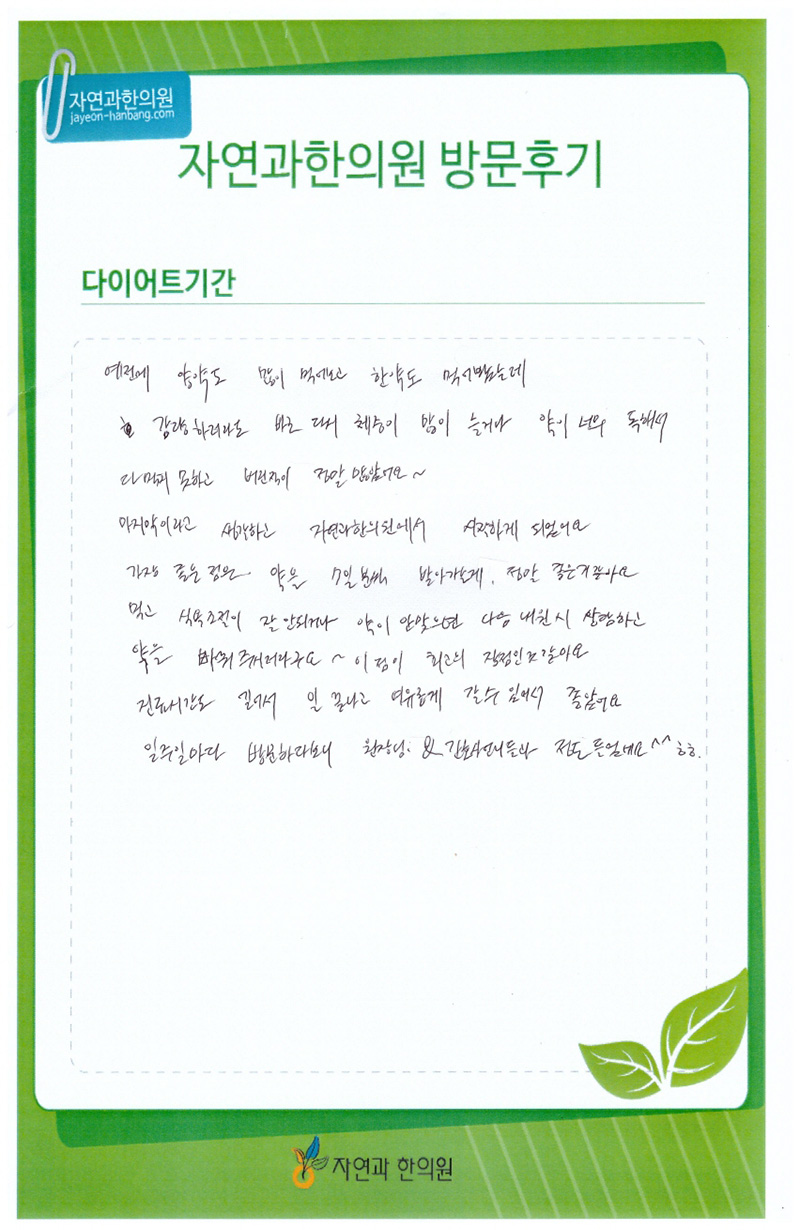 자연과한의원
jayeon-hanbang.com
자연과한의원 방문후기
다이어트기간
예전에 양약도 많이 먹어보고 한약도 먹어봤는데
감량하더라도 바로 다시 체중이 많이 늘거나 약이 너무 독해서
다 먹지 못하고 버린적이 정말 많았어요~
마지막이라고 생각하고 자연과한의원에서 시작하게 되었어요
가장 좋은 점은 약을 7일분씩 받아가는게, 정말 좋은거 같아요
먹고 식욕조절이 잘 안되거나 약이 안맞으면 다음 내원 시 상담하고
약을 바꿔주시더라구요~ 이 점이 최고의 장점인것 같아요
진료시간도 길어서 일 끝나고 여유롭게 갈 수 있어서 좋았어요
일주일마다 방문하다보니 원장님 & 간호사언니들과 정도 들었네요^^ ㅎㅎ.
자연과 한의원